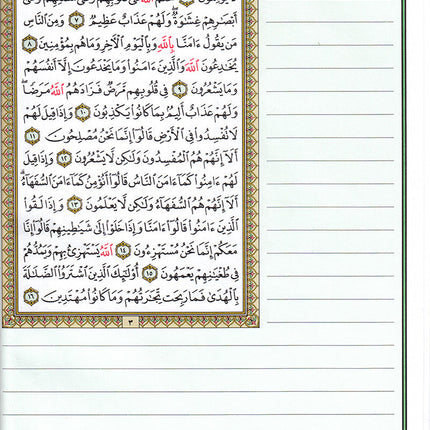 أَبْصَٰرِهِمْ غِشَٰوَةٌ ۖ وَلَهُمْ عَذَابٌ عَظِيمٌ ٧ وَمِنَ النَّاسِ
مَن يَقُولُ ءَامَنَّا بِاللَّهِ وَبِالْيَوْمِ الْآخِرِ وَمَا هُم بِمُؤْمِنِينَ ٨
يُخَٰدِعُونَ اللَّهَ وَالَّذِينَ ءَامَنُوا وَمَا يَخْدَعُونَ إِلَّا أَنفُسَهُمْ
وَمَا يَشْعُرُونَ ٩ فِي قُلُوبِهِم مَّرَضٌ فَزَادَهُمُ اللَّهُ مَرَضًا ۖ
وَلَهُمْ عَذَابٌ أَلِيمٌ بِمَا كَانُوا يَكْذِبُونَ ١٠ وَإِذَا قِيلَ لَهُمْ
لَا تُفْسِدُوا فِي الْأَرْضِ قَالُوا إِنَّمَا نَحْنُ مُصْلِحُونَ ١١
أَلَا إِنَّهُمْ هُمُ الْمُفْسِدُونَ وَلَٰكِن لَّا يَشْعُرُونَ ١٢ وَإِذَا قِيلَ
لَهُمْ ءَامِنُوا كَمَا ءَامَنَ النَّاسُ قَالُوا أَنُؤْمِنُ كَمَا ءَامَنَ السُّفَهَاءُ ۗ
أَلَا إِنَّهُمْ هُمُ السُّفَهَاءُ وَلَٰكِن لَّا يَعْلَمُونَ ١٣ وَإِذَا لَقُوا
الَّذِينَ ءَامَنُوا قَالُوا ءَامَنَّا وَإِذَا خَلَوْا إِلَىٰ شَيَٰطِينِهِمْ قَالُوا إِنَّا
مَعَكُمْ إِنَّمَا نَحْنُ مُسْتَهْزِءُونَ ١٤ اللَّهُ يَسْتَهْزِئُ بِهِمْ وَيَمُدُّهُمْ
فِي طُغْيَٰنِهِمْ يَعْمَهُونَ ١٥ أُولَٰئِكَ الَّذِينَ اشْتَرَوُا الضَّلَٰلَةَ
بِالْهُدَىٰ فَمَا رَبِحَت تِّجَٰرَتُهُمْ وَمَا كَانُوا مُهْتَدِينَ ١٦
٣